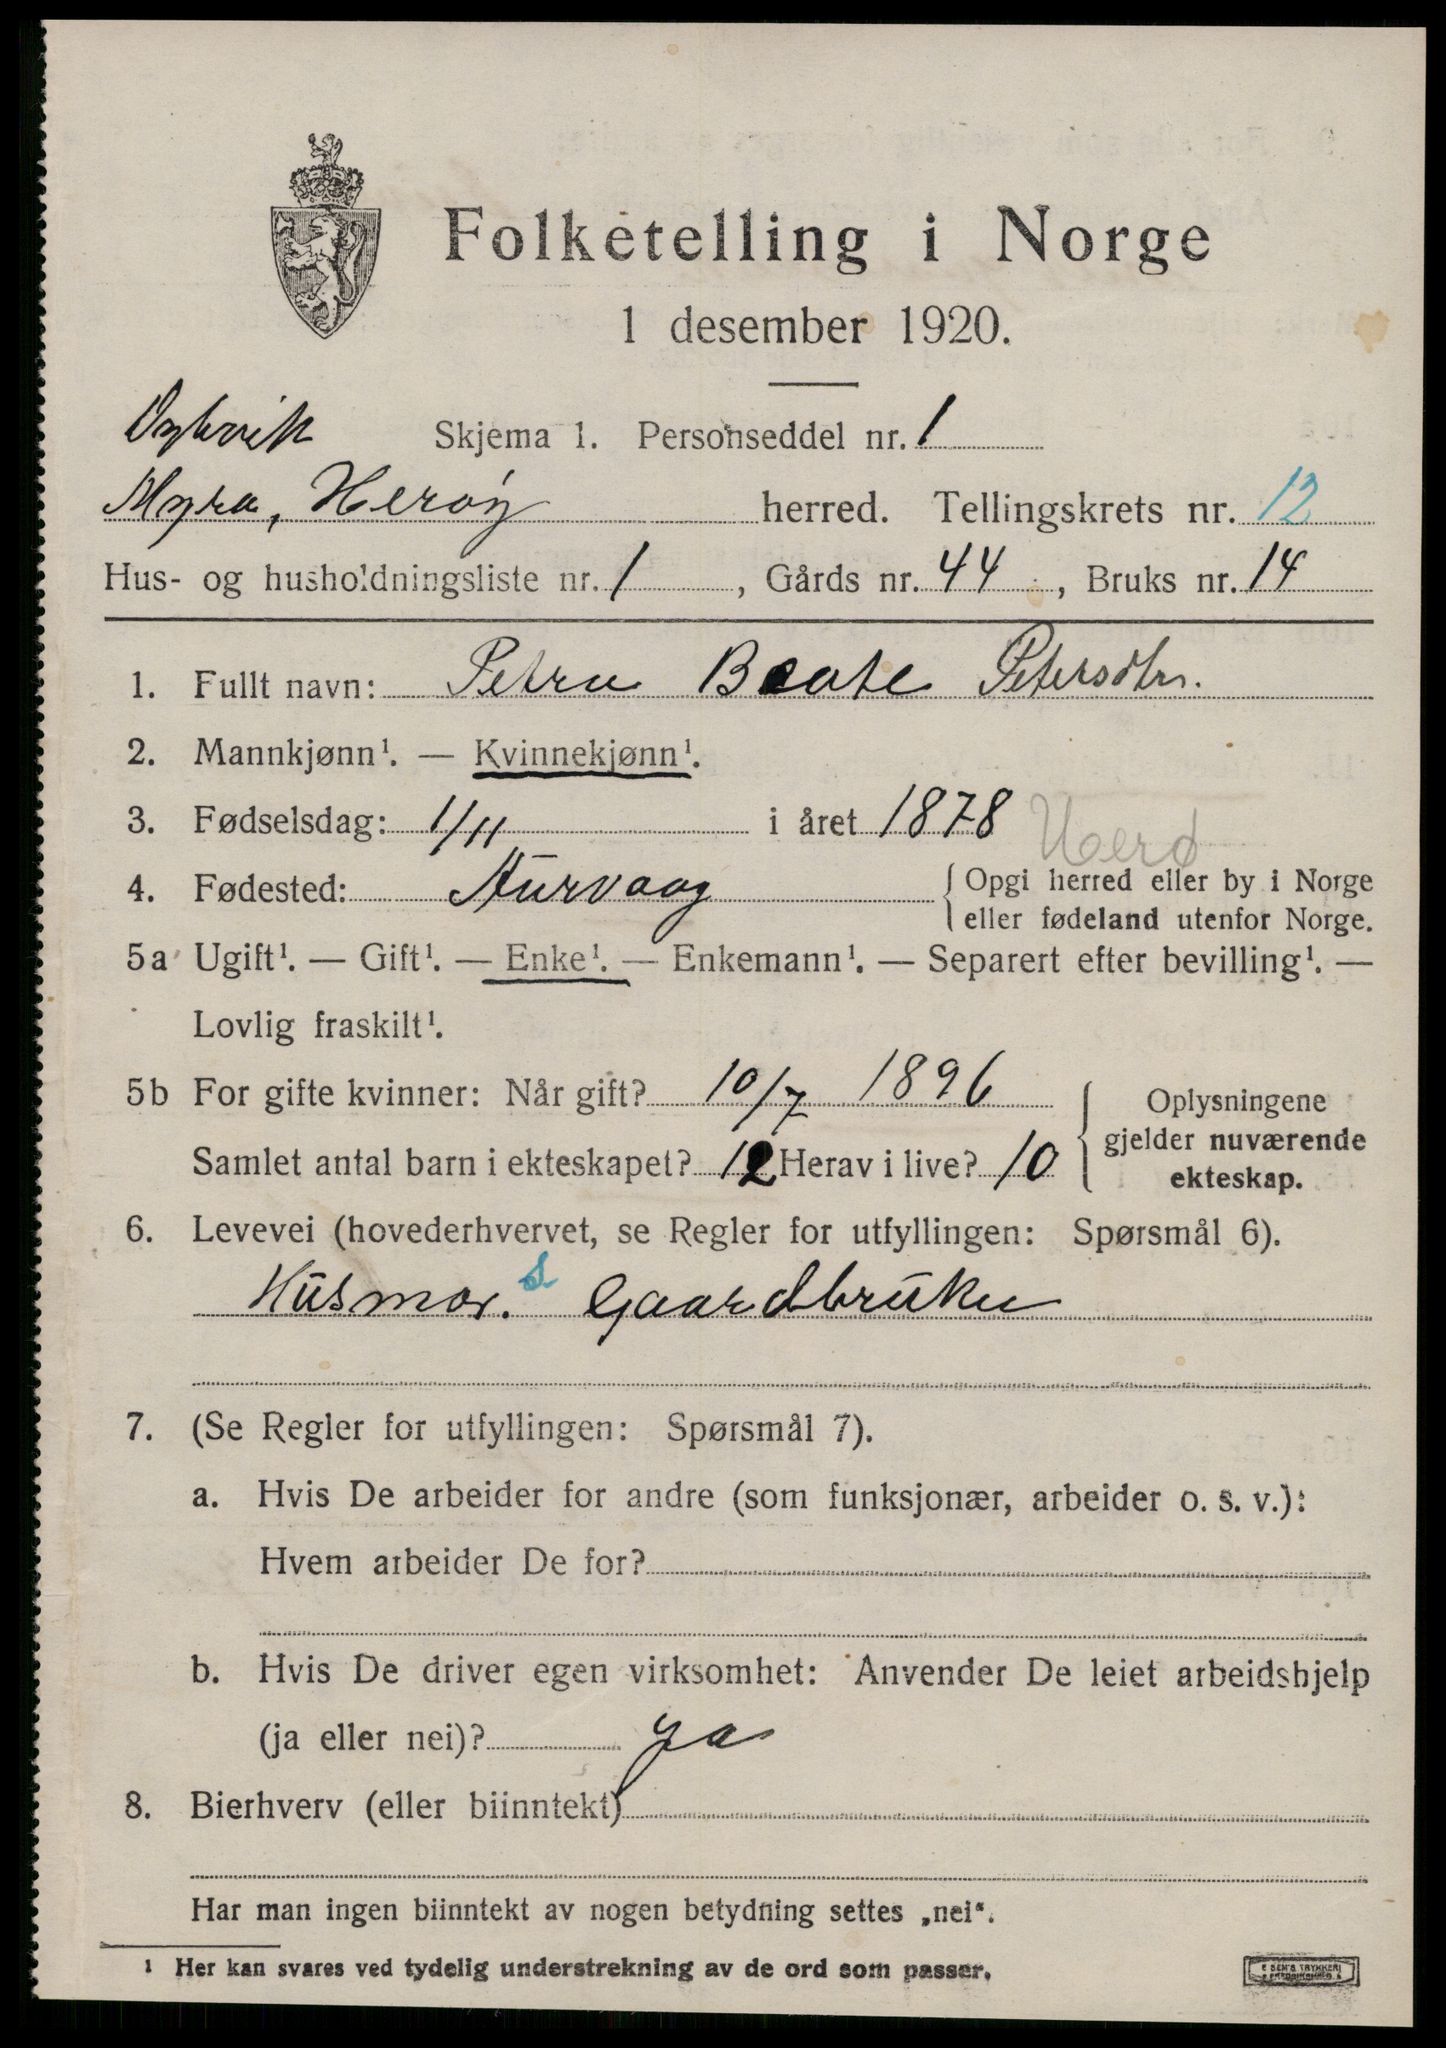 Folketelling i Norge
1 desember 1920.
Skjema 1. Personseddel nr. 1
Myra, Herøy herred. Tellingskrets nr. 12
Hus- og husholdningsliste nr. 1, Gårds nr. 44, Bruks nr. 14
1. Fullt navn: Petra Beate Petersdtr.
2. Mannkjønn¹. — Kvinnekjønn¹.
3. Fødselsdag: 1/11 i året 1878
Herø
4. Fødested: Kurvaag { Opgi herred eller by i Norge
eller fødeland utenfor Norge.
5a Ugift¹. — Gift¹. — Enke¹. — Enkemann¹. — Separert efter bevilling¹. —
Lovlig fraskilt¹.
5b For gifte kvinner: Når gift? 10/7 1896 { Oplysningene
gjelder nuværende
Samlet antal barn i ekteskapet? 12 Herav i live? 10 ekteskap.
6. Levevei (hovederhvervet, se Regler for utfyllingen: Spørsmål 6).
Husmor. s Gaardbruker
7. (Se Regler for utfyllingen: Spørsmål 7).
a. Hvis De arbeider for andre (som funksjonær, arbeider o. s. v.):
Hvem arbeider De for?
b. Hvis De driver egen virksomhet: Anvender De leiet arbeidshjelp
(ja eller nei)? ja
8. Bierhverv (eller biinntekt)
Har man ingen biinntekt av nogen betydning settes „nei".
¹ Her kan svares ved tydelig understrekning av de ord som passer.